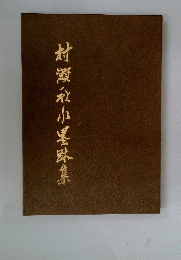 村瀬秋水墨跡集